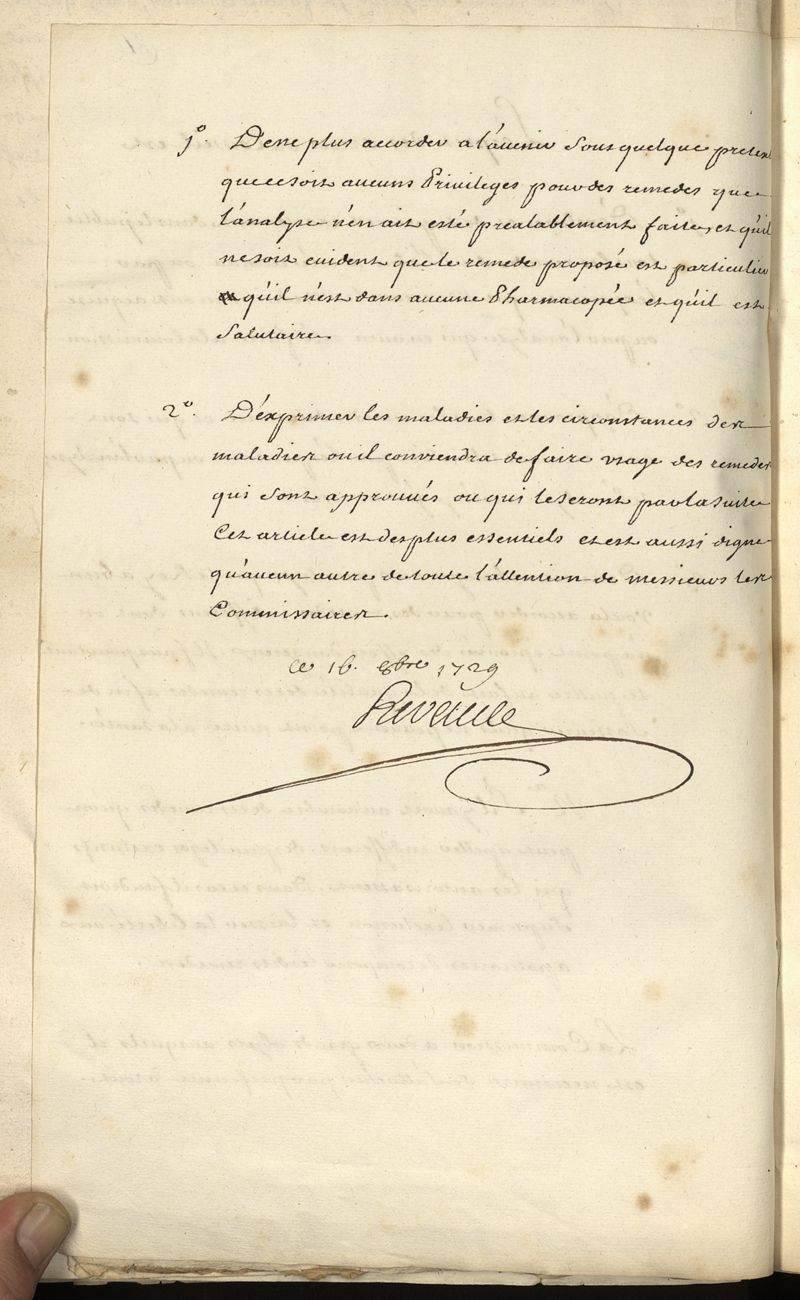 1º. De ne plus accorder a l'avenir sous quelque pretex
que ce soit aucuns Privileges pour des remedes que
l'analyse n'en ait esté prealablement faite, et qu'il
ne soit evident que le remede proposé est particulier
qu'il n'est dans aucune Pharmacopée et qu'il est
salutaire.
2º. D'exprimer les maladies et les circonstances des
maladies ou il conviendra de faire usage des remedes
qui sont approuvés ou qui le seront par la suite
Cet article est des plus essentiels et est aussi digne
qu'aucun autre de toute l'attention de messieurs les
Commissaires.
ce 16. 8bre 1729